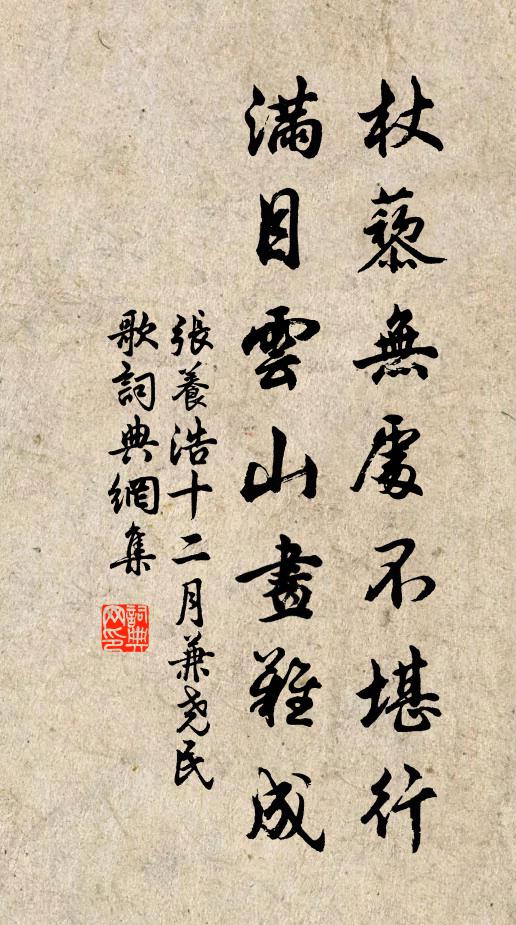 杖藜無處不堪行
滿目雲山畫難成
張養浩十二月兼堯民
歌詞典網集
詞典網印